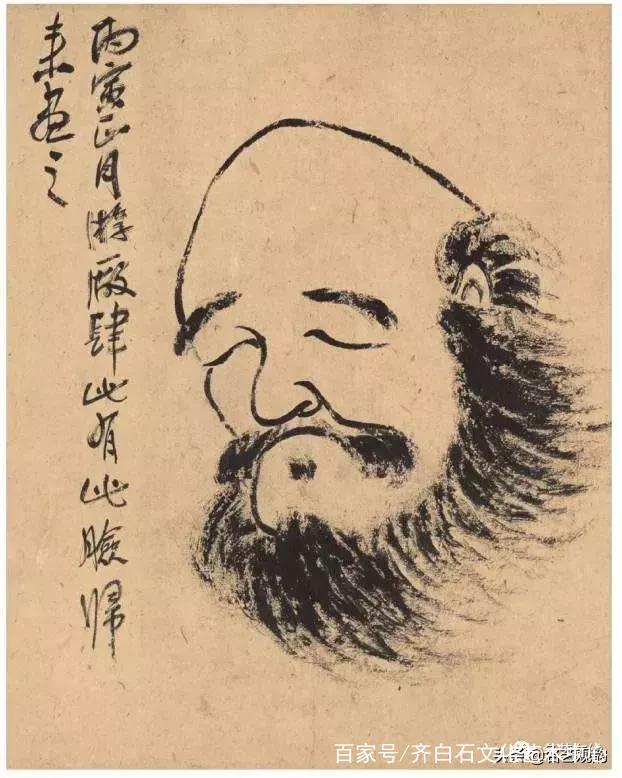 丙寅正月游厰肆此有此臉歸
来画之
百家号/齐白石文化艺术